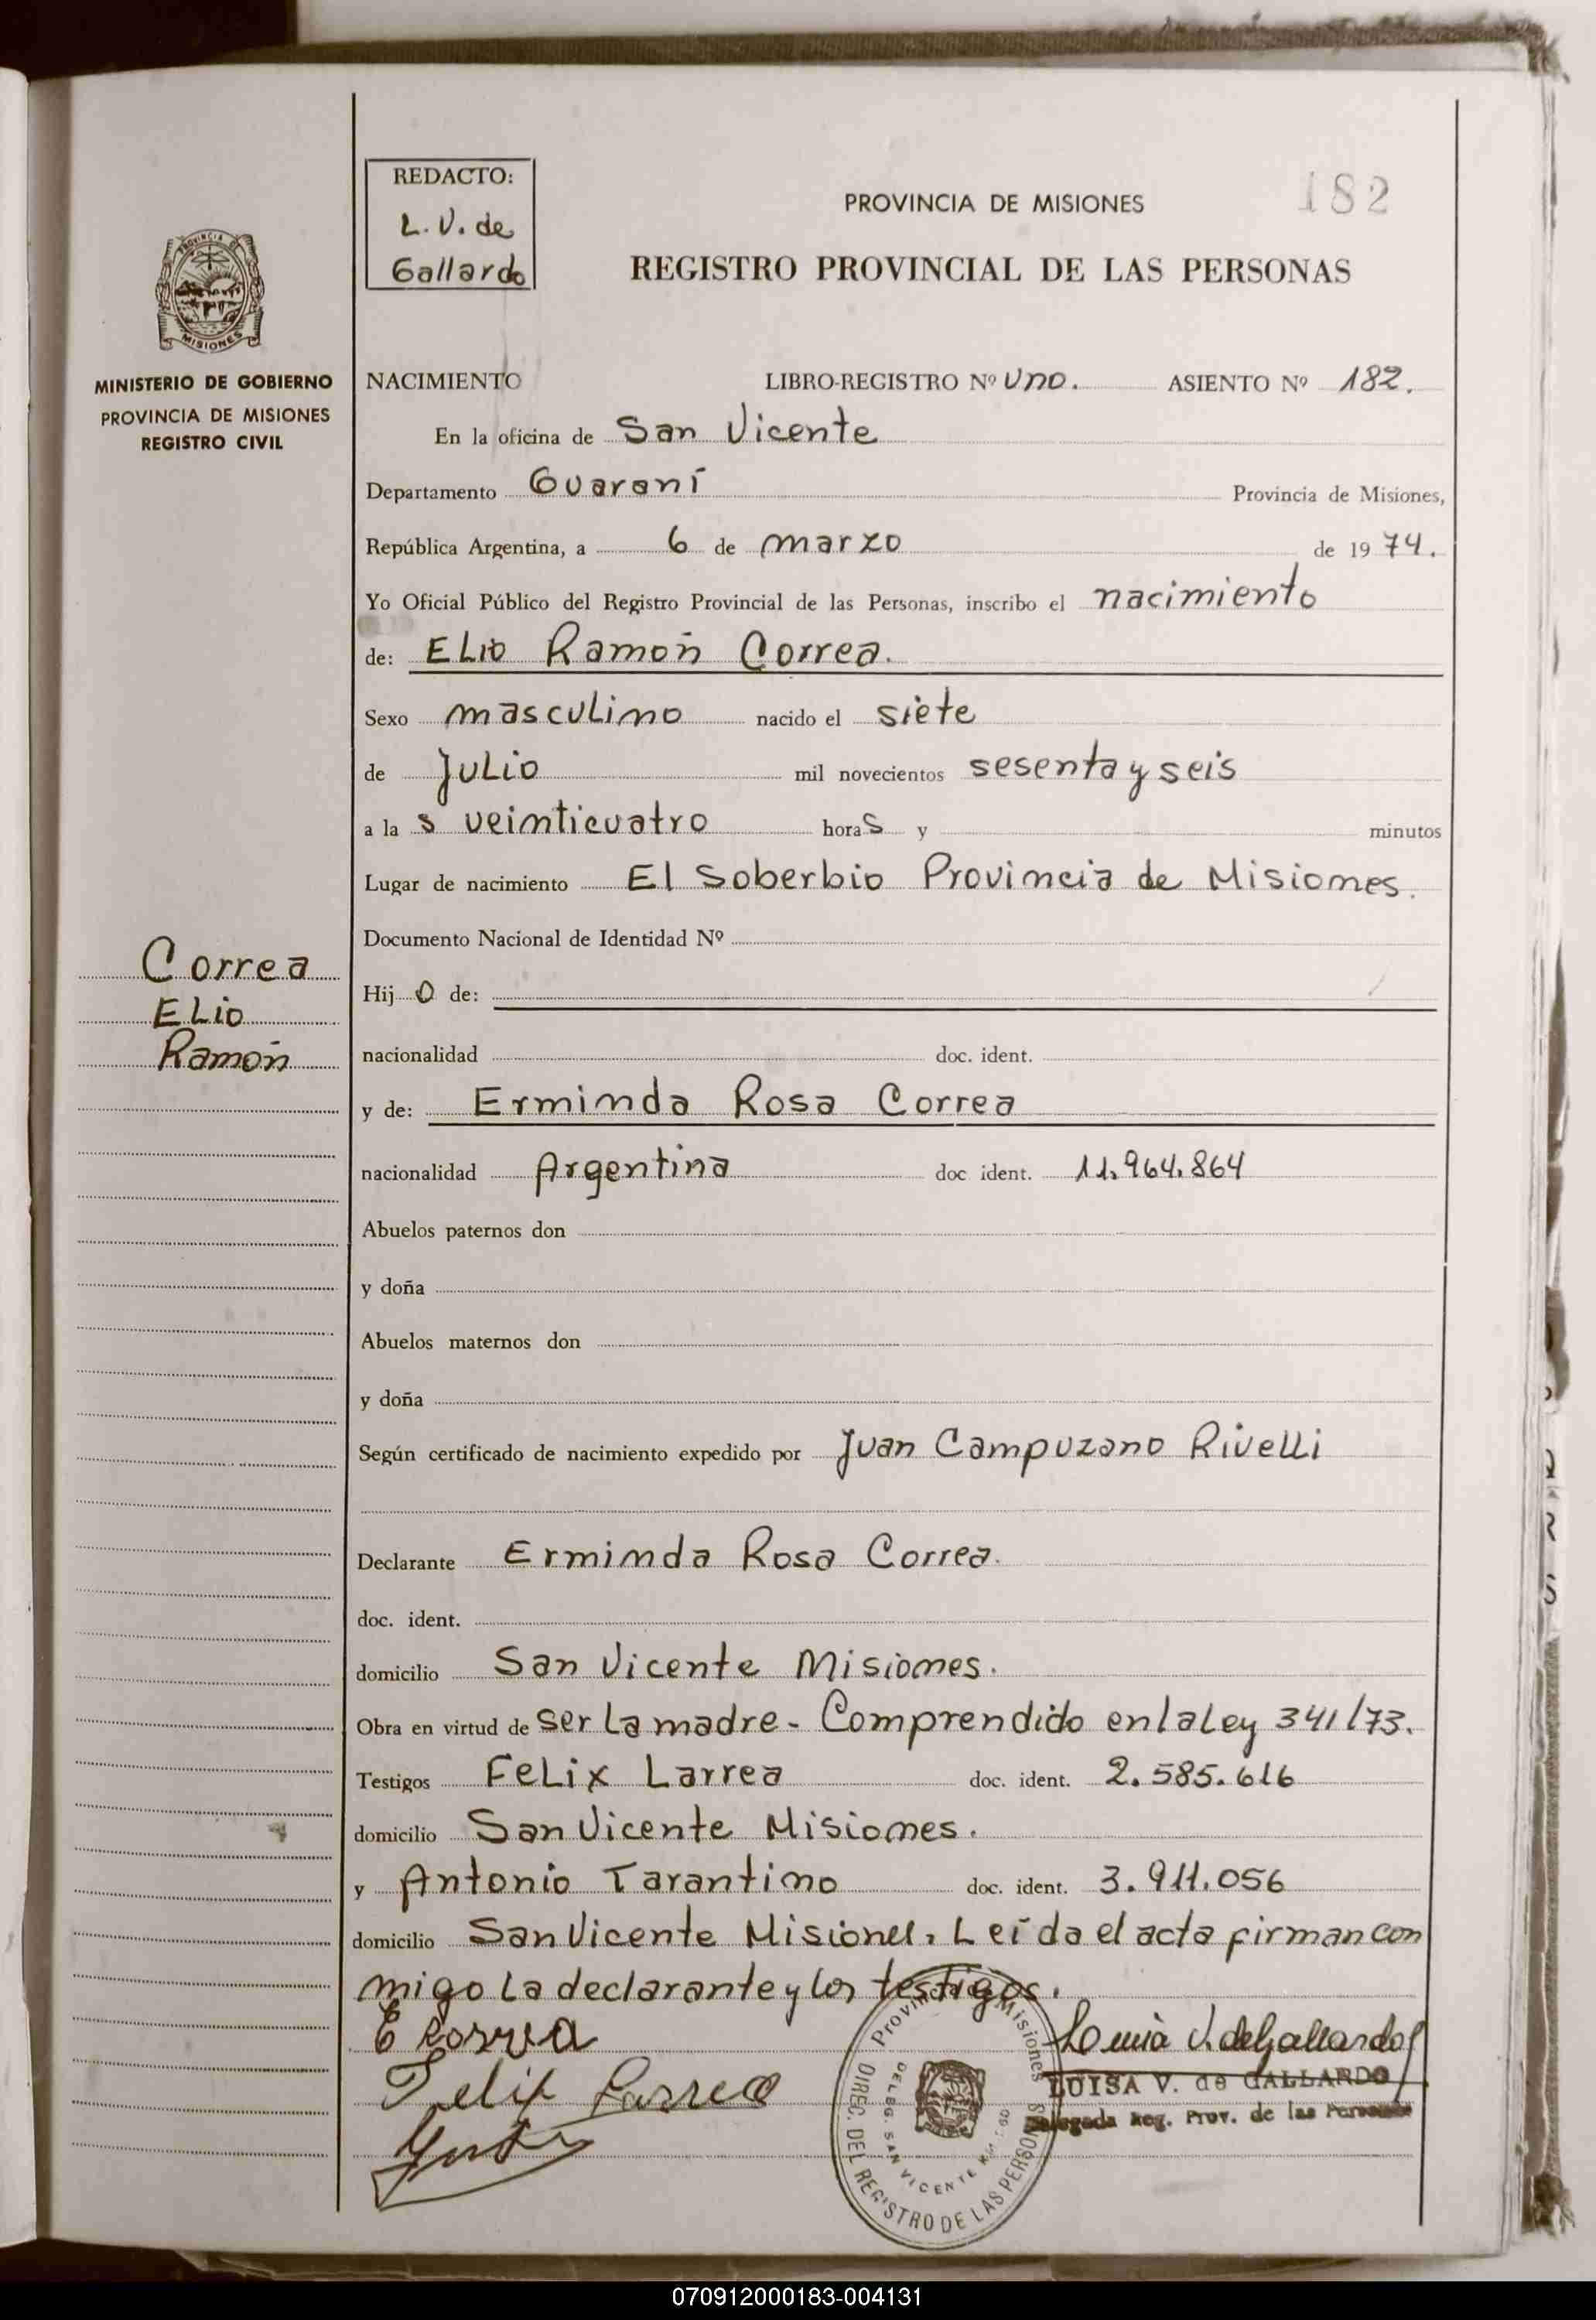 REDACTO:
L. V. de
Gallardo
182
PROVINCIA DE MISIONES
REGISTRO PROVINCIAL DE LAS PERSONAS
PROVINCIA DE
MISIONES
MINISTERIO DE GOBIERNO
PROVINCIA DE MISIONES
REGISTRO CIVIL
NACIMIENTO LIBRO-REGISTRO Nº Uno. ASIENTO Nº 182.
En la oficina de San Vicente
Departamento Guaraní Provincia de Misiones,
República Argentina, a 6 de marzo de 19 74.
Yo Oficial Público del Registro Provincial de las Personas, inscribo el nacimiento
de: ELio Ramón Correa.
Sexo masculino nacido el siete
de Julio mil novecientos sesenta y seis
a la s veinticuatro hora s y minutos
Lugar de nacimiento El Soberbio Provincia de Misiones.
Documento Nacional de Identidad Nº
Correa
ELio
Ramón
Hij o de:
nacionalidad doc. ident.
y de: Erminda Rosa Correa
nacionalidad Argentina doc ident. 11.964.864
Abuelos paternos don
y doña
Abuelos maternos don
y doña
Según certificado de nacimiento expedido por Juan Campuzano Rivelli
Declarante Erminda Rosa Correa.
doc. ident.
domicilio San Vicente Misiones.
Obra en virtud de ser La madre - Comprendido en la Ley 341/73.
Testigos FeLix Larrea doc. ident. 2.585.616
domicilio San Vicente Misiones.
y Antonio Tarantino doc. ident. 3.911.056
domicilio San Vicente Misiones, Leída el acta firman con
migo La declarante y los testigos.
E Correa
Felix Larrea
Luisa V. de Gallardo
LUISA V. de GALLARDO
Delegada Reg. Prov. de las Personas
Provincia de Misiones
DIREC. DEL REGISTRO DE LAS PERSONAS
DELEG. SAN VICENTE
070912000183-004131